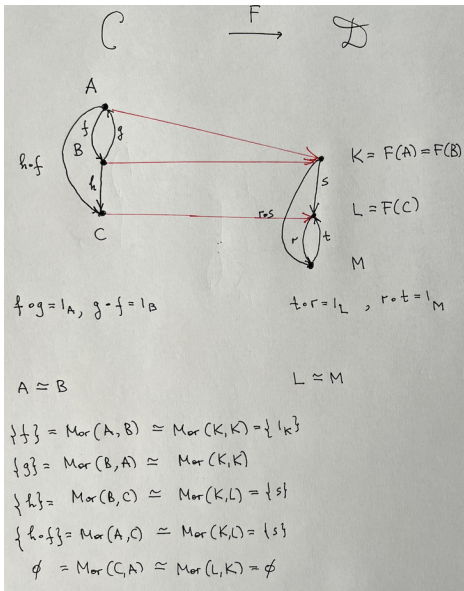 C F D
A
f g
B
h∘f
h
C
K = F(A) = F(B)
s
L = F(C)
r∘s
r t
M
f∘g = 1_A, g∘f = 1_B
t∘r = 1_L , r∘t = 1_M
A ≃ B
L ≃ M
{f} = Mor(A, B) ≃ Mor(K, K) = {1_K}
{g} = Mor(B, A) ≃ Mor(K, K)
{h} = Mor(B, C) ≃ Mor(K, L) = {s}
{h∘f} = Mor(A, C) ≃ Mor(K, L) = {s}
ϕ = Mor(C, A) ≃ Mor(L, K) = ϕ